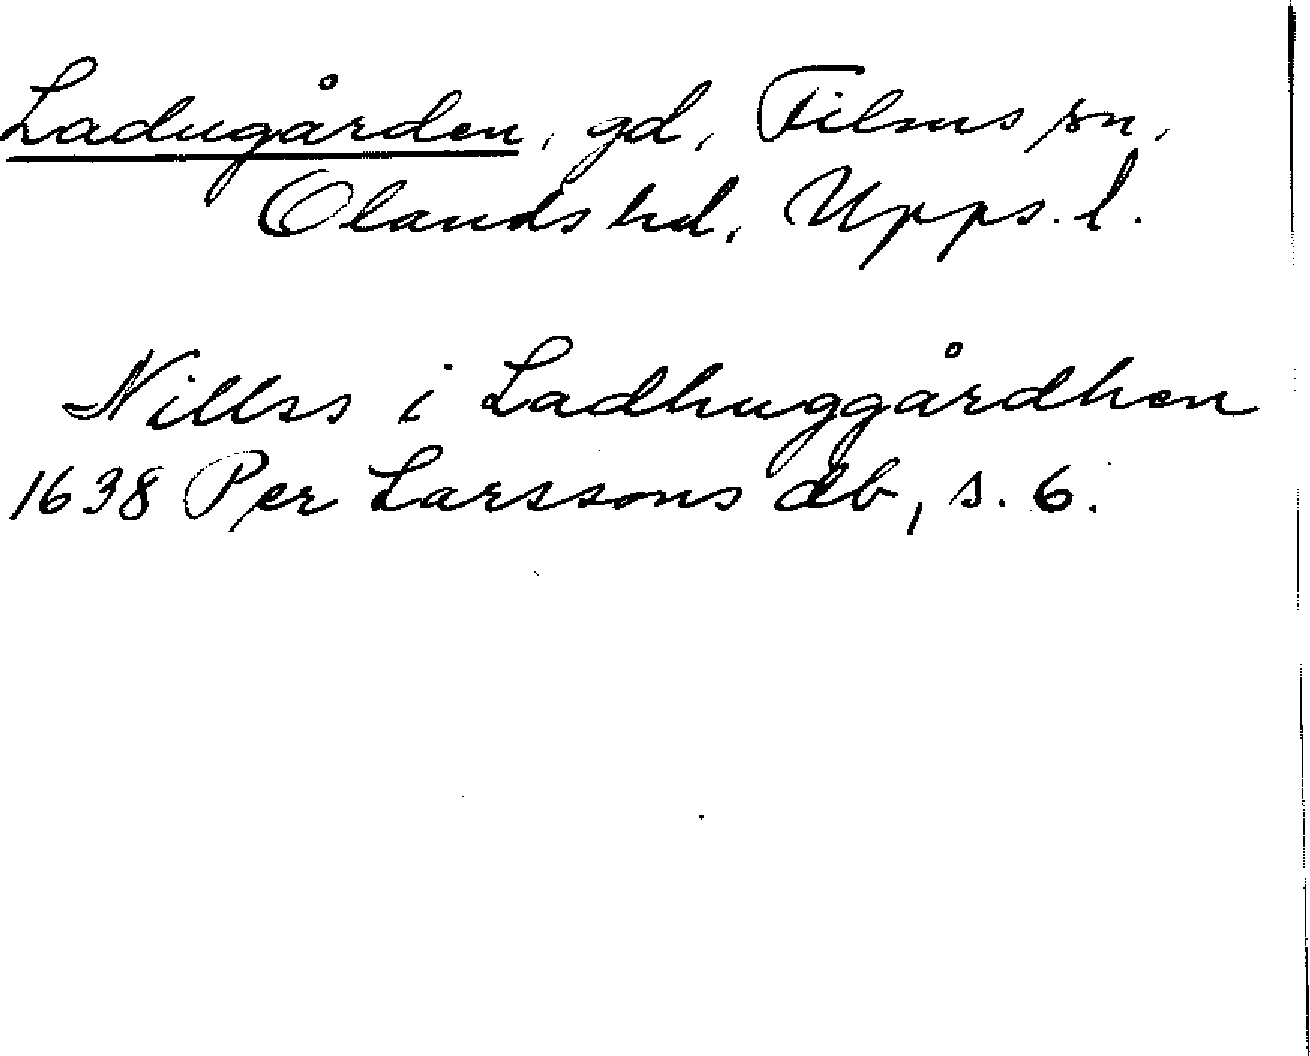 Ladugården, gd, Films sn,
Olands hd, Upps. l.
Nillss i Ladhuggårdhen
1638 Per Larssons db, s. 6.